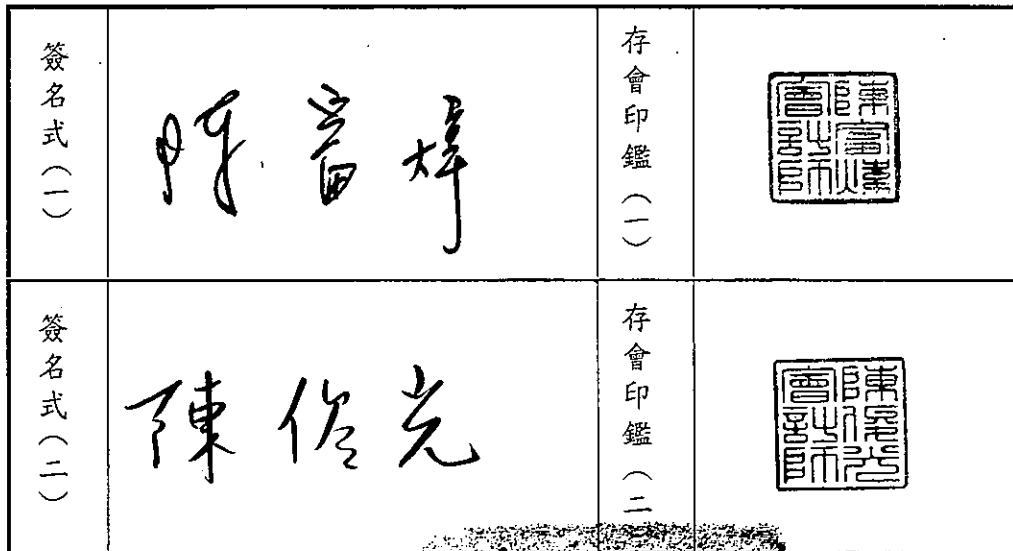 簽名式（一）
陳富煒
存會印鑑（一）
陳富煒會計師
簽名式（二）
陳俊光
存會印鑑（二
陳俊光會計師